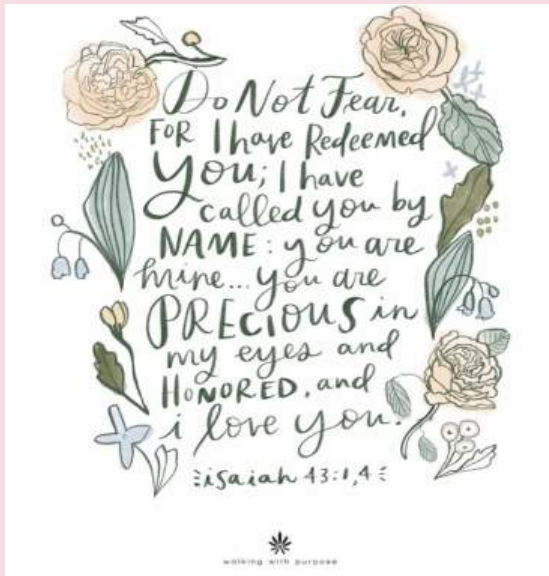 Do Not Fear,
FOR I have Redeemed
You; I have
called you by
NAME: you are
mine... you are
PRECIOUS in
my eyes and
HONORED, and
i love you.
isaiah 43:1,4
walking with purpose